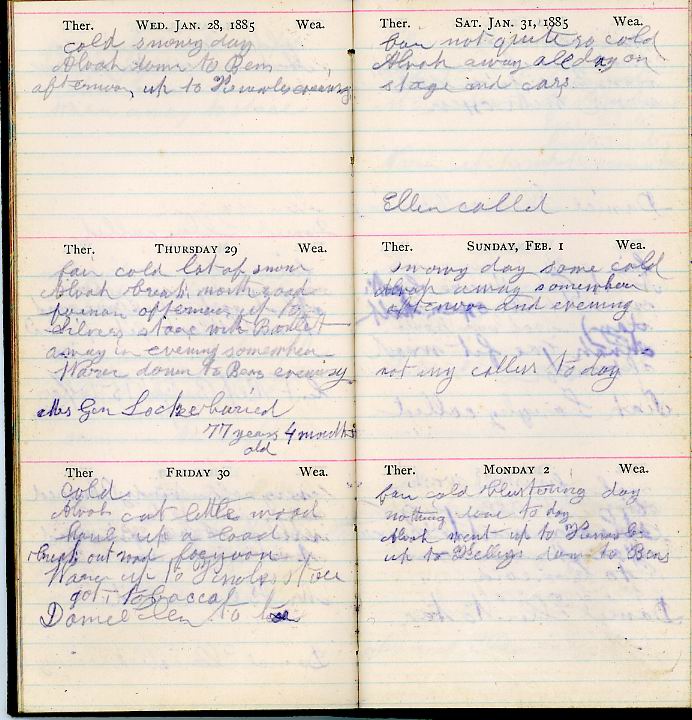 Ther. WED. JAN. 28, 1885 Wea.
cold snowy day
Alvah down to Bens
afternoon up to evening
Ther. THURSDAY 29 Wea.
fair cold lot of snow
Alvah break road
afternoon up to
stage with
away in evening
down to Bens evening
Mrs Gen Locke buried
77 years 4 months
old
Ther FRIDAY 30 Wea.
cold
Alvah cut little wood
haul up a load
break out road
up to store
got tobacco
to tea
Ther. SAT. JAN. 31, 1885 Wea.
fair not quite so cold
Alvah away all day on
stage and cars
Ellen called
Ther. SUNDAY, FEB. 1 Wea.
snowy day some cold
Alvah away somewhere
afternoon and evening
not any callers to day
Ther. MONDAY 2 Wea.
fair cold blustering day
nothing done to day
Alvah went up to
up to down to Bens